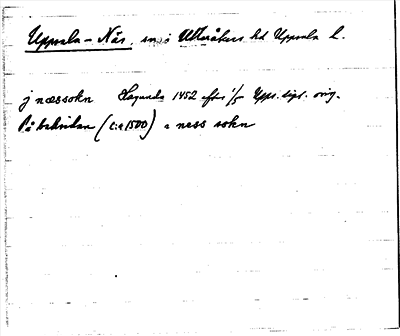 Uppsala-Näs, sn i Ulleråkers hd Uppsala l.
j næssokn Hagunda 1452 efter 1/5 Upps. dipl. orig.
På baksidan (c:a 1500) a næss sokn